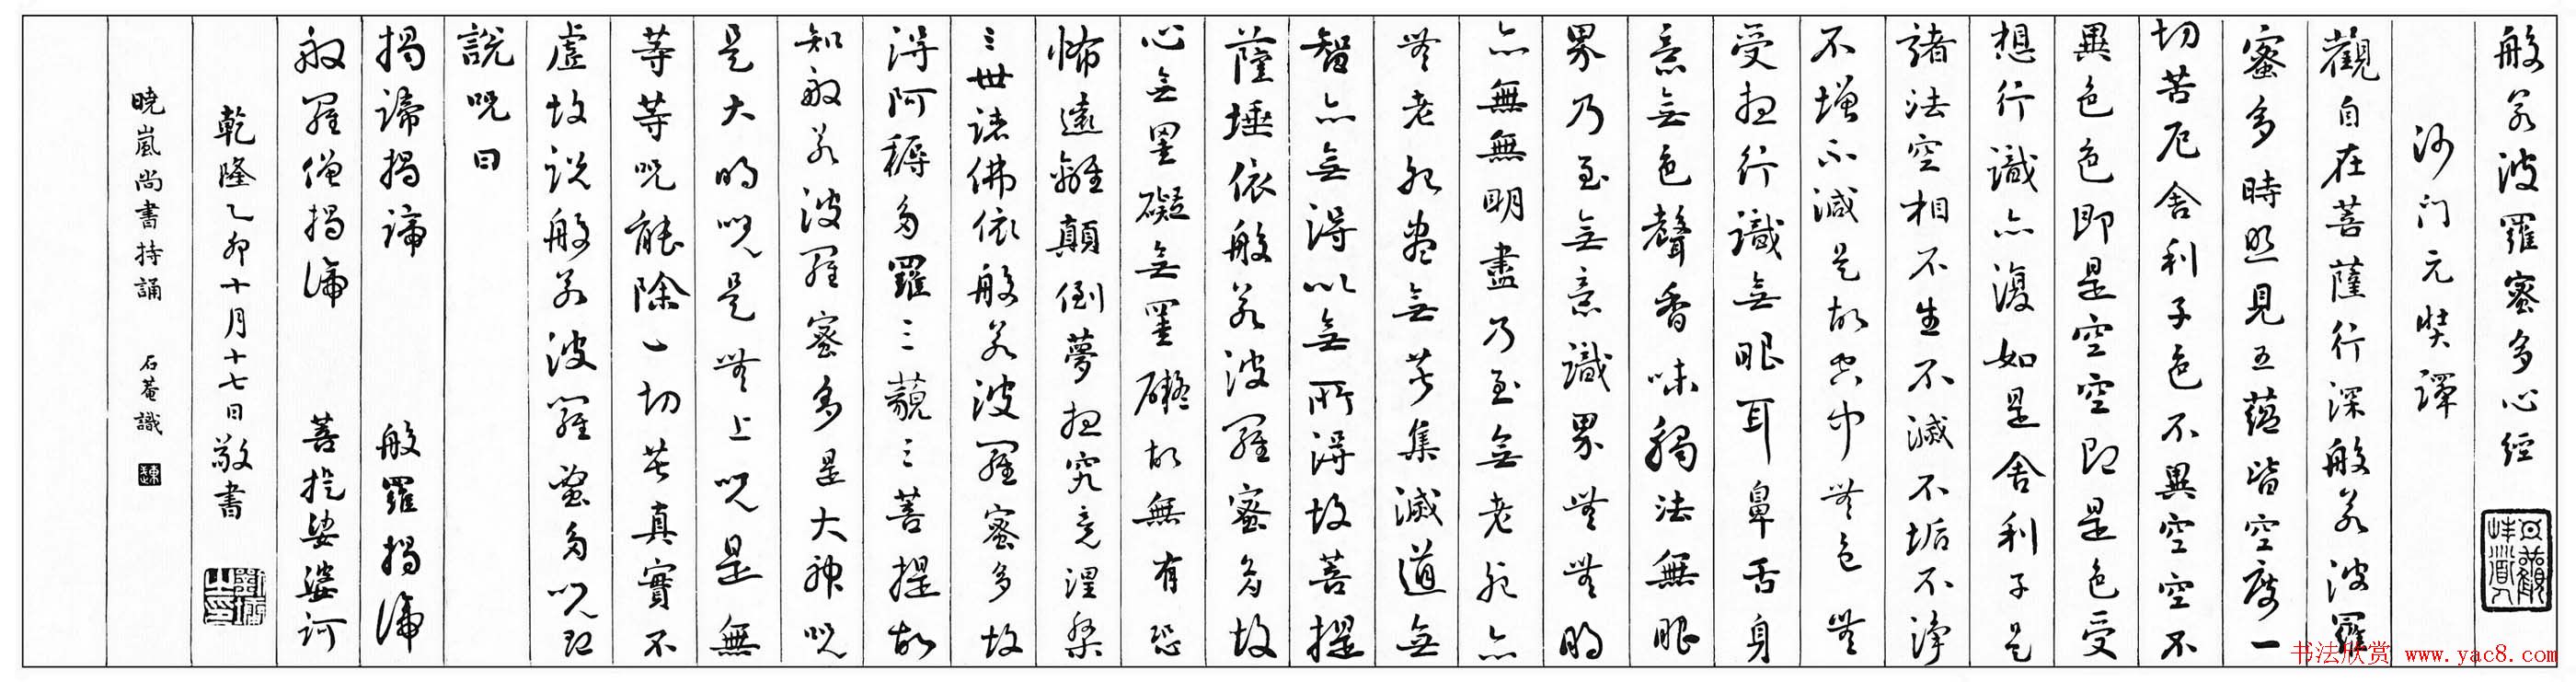 般若波羅蜜多心經
沙门元奘譯
觀自在菩薩行深般若波羅
蜜多時照見五蘊皆空度一
切苦厄舍利子色不異空空不
異色色即是空空即是色受
想行識亦復如是舍利子是
諸法空相不生不滅不垢不淨
不增不減是故空中無色無
受想行識無眼耳鼻舌身
意無色聲香味觸法無眼
界乃至無意識界無無明
亦無無明盡乃至無老死亦
無老死盡無苦集滅道無
智亦無得以無所得故菩提
薩埵依般若波羅蜜多故
心無罣礙無罣礙故無有恐
怖遠離顛倒夢想究竟涅槃
三世諸佛依般若波羅蜜多故
得阿耨多羅三藐三菩提故
知般若波羅蜜多是大神呪
是大明呪是無上呪是無
等等呪能除一切苦真實不
虛故說般若波羅蜜多呪即
說呪曰
揭諦揭諦 般羅揭諦
般羅僧揭諦 菩提娑婆訶
乾隆乙卯十月十七日敬書
劉墉之印
曉嵐尚書持誦 石菴識
书法欣赏 www.yac8.com